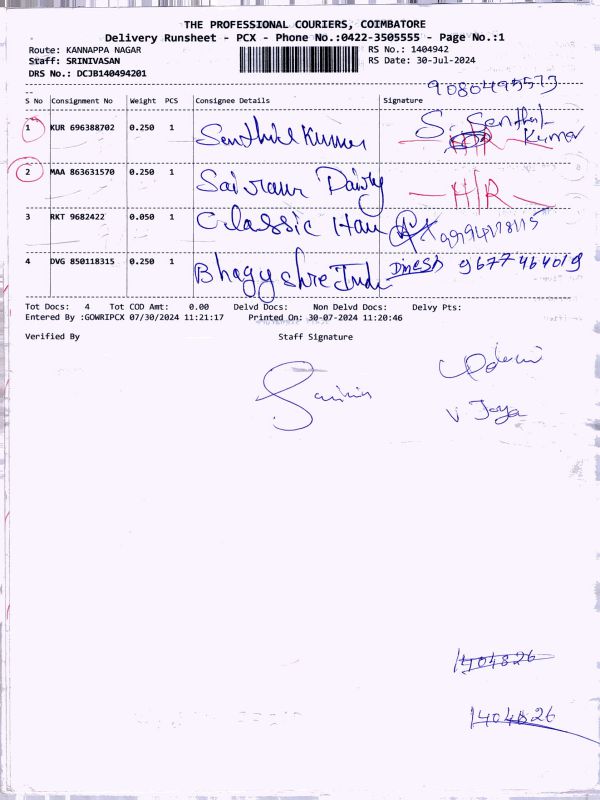 THE PROFESSIONAL COURIERS, COIMBATORE
Delivery Runsheet - PCX - Phone No.:0422-3505555 - Page No.:1
Route: KANNAPPA NAGAR RS No.: 1404942
Staff: SRINIVASAN RS Date: 30-Jul-2024
DRS No.: DCJB140494201
9080495573
S No Consignment No Weight PCS Consignee Details Signature
1 KUR 696388702 0.250 1 Senthil Kumar S. Senthil Kumar
H/R
2 MAA 863631570 0.250 1 Sairam Dairy H/R
3 RKT 9682422 0.050 1 Classic
4 DVG 850118315 0.250 1 Bhagyshree Dinesh 9677464019
Tot Docs: 4 Tot COD Amt: 0.00 Delvd Docs: Non Delvd Docs: Delvy Pts:
Entered By :GOWRIPCX 07/30/2024 11:21:17 Printed On: 30-07-2024 11:20:46
Verified By Staff Signature
V Jaya
1404826
1404826